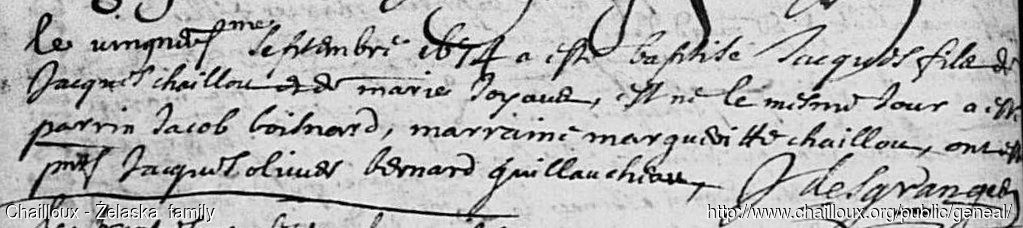 le vingneufme septembre 1674 a esté baptisé Jacques fils de
Jacques chaillou et de marie Joyaux, est né le mesme Jour a esté
parrin Jacob boisnard, marraine margueritte chaillou, ont esté
pnts Jacques olivier bernard guillaucheau, J desgranges
Chailloux - Żelaska family
http://www.chailloux.org/public/geneal/